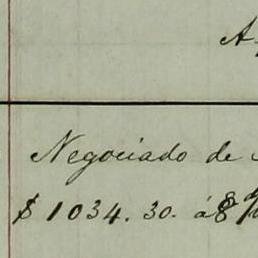 A
Negociado de
$ 1034.30. á 8